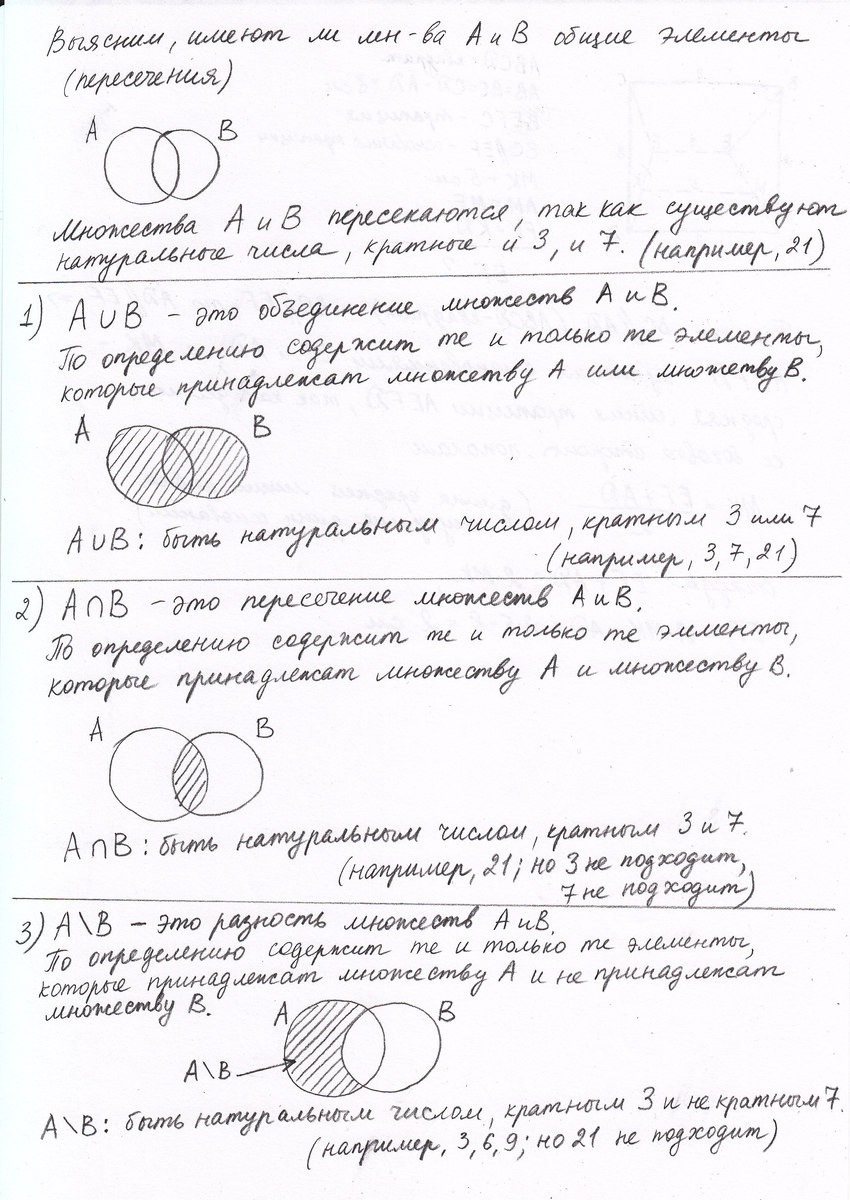 Выясним, имеют ли мн-ва А и В общие элементы
(пересечения)
А В
Множества А и В пересекаются, так как существуют
натуральные числа, кратные и 3, и 7. (например, 21)
1) А∪В – это объединение множеств А и В.
По определению содержит те и только те элементы,
которые принадлежат множеству А или множеству В.
А В
А∪В: быть натуральным числом, кратным 3 или 7
(например, 3, 7, 21)
2) А∩В – это пересечение множеств А и В.
По определению содержит те и только те элементы,
которые принадлежат множеству А и множеству В.
А В
А∩В: быть натуральным числом, кратным 3 и 7.
(например, 21; но 3 не подходит,
7 не подходит)
3) А\В – это разность множеств А и В.
По определению содержит те и только те элементы,
которые принадлежат множеству А и не принадлежат
множеству В.
А В
А\В
А\В: быть натуральным числом, кратным 3 и не кратным 7.
(например, 3, 6, 9; но 21 не подходит)